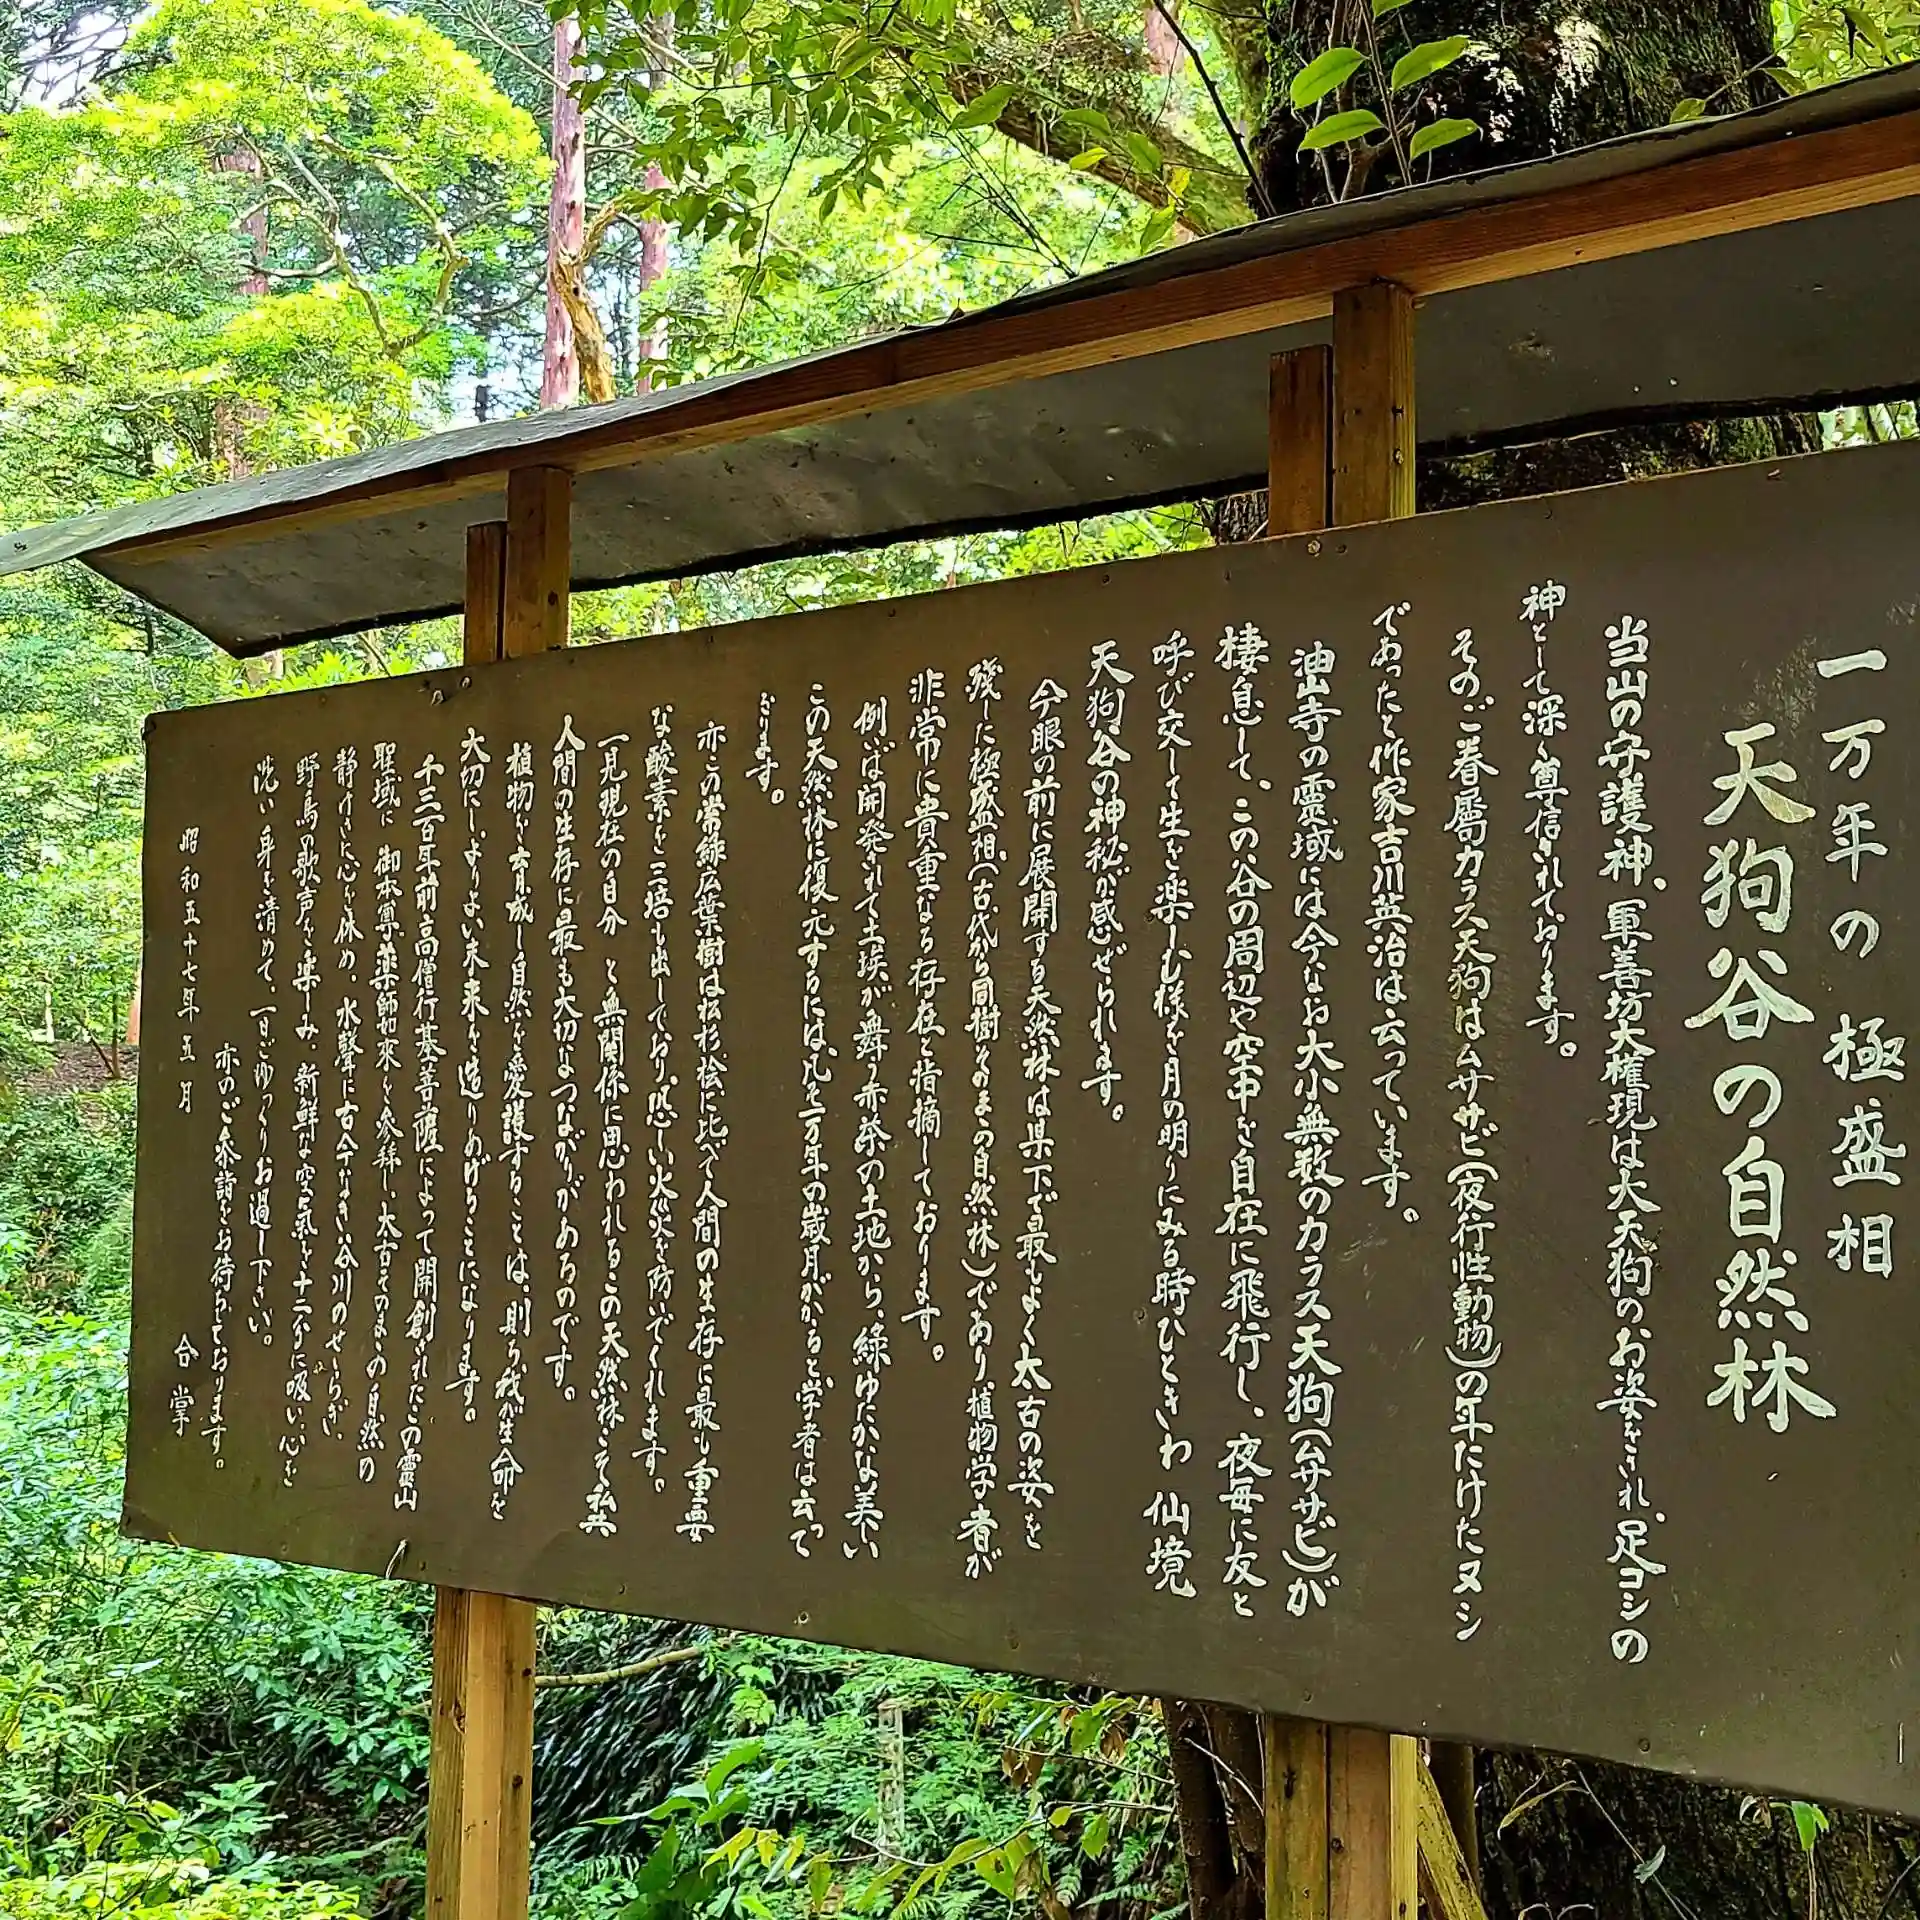 一万年の 極盛相
天狗谷の自然林
当山の守護神、軍善坊大権現は大天狗のお姿をされ、足コシの
神として深く尊信されております。
そのご眷属カラス天狗はムササビ(夜行性動物)の年たけたヌシ
であったと作家吉川英治は云っています。
油山寺の霊域には今なお大小無数のカラス天狗(ムササビ)が
棲息して、この谷の周辺や空中を自在に飛行し、夜毎に友と
呼び交して生を楽しむ様を月の明りにみる時ひときわ 仙境
天狗谷の神秘が感ぜられます。
今眼の前に展開する天然林は県下で最もよく太古の姿を
残した極盛相(古代から同樹そのままの自然林)であり、植物学者が
非常に貴重なる存在と指摘しております。
例えば開発されて土埃が舞う赤茶の土地から、緑ゆたかな美しい
この天然林に復元するには、凡そ一万年の歳月がかかると学者は云って
おります。
亦この常緑広葉樹は松杉桧に比べて人間の生存に最も重要
な酸素を三培も出しており、恐しい火災を防いでくれます。
一見現在の自分 と無関係に思われるこの天然林こそ私共
人間の生存に最も大切なつながりがあるのです。
植物を育成し自然を愛護することは、則ち我が生命を
大切にし、よりよい未来を造りあげることになります。
千三百年前高僧行基菩薩によって開創されたこの霊山
聖域に 御本尊薬師如来を参拝し、太古そのままの自然の
静けさに心を休め、水聲に古今なき谷川のせゝらぎ、
野鳥の歌声を楽しみ、新鮮な空氣を十二分に吸い、心を
洗い身を清めて、一日ごゆっくりお過し下さい。
亦のご参詣をお待ちしております。
昭和五十七年五月 合掌